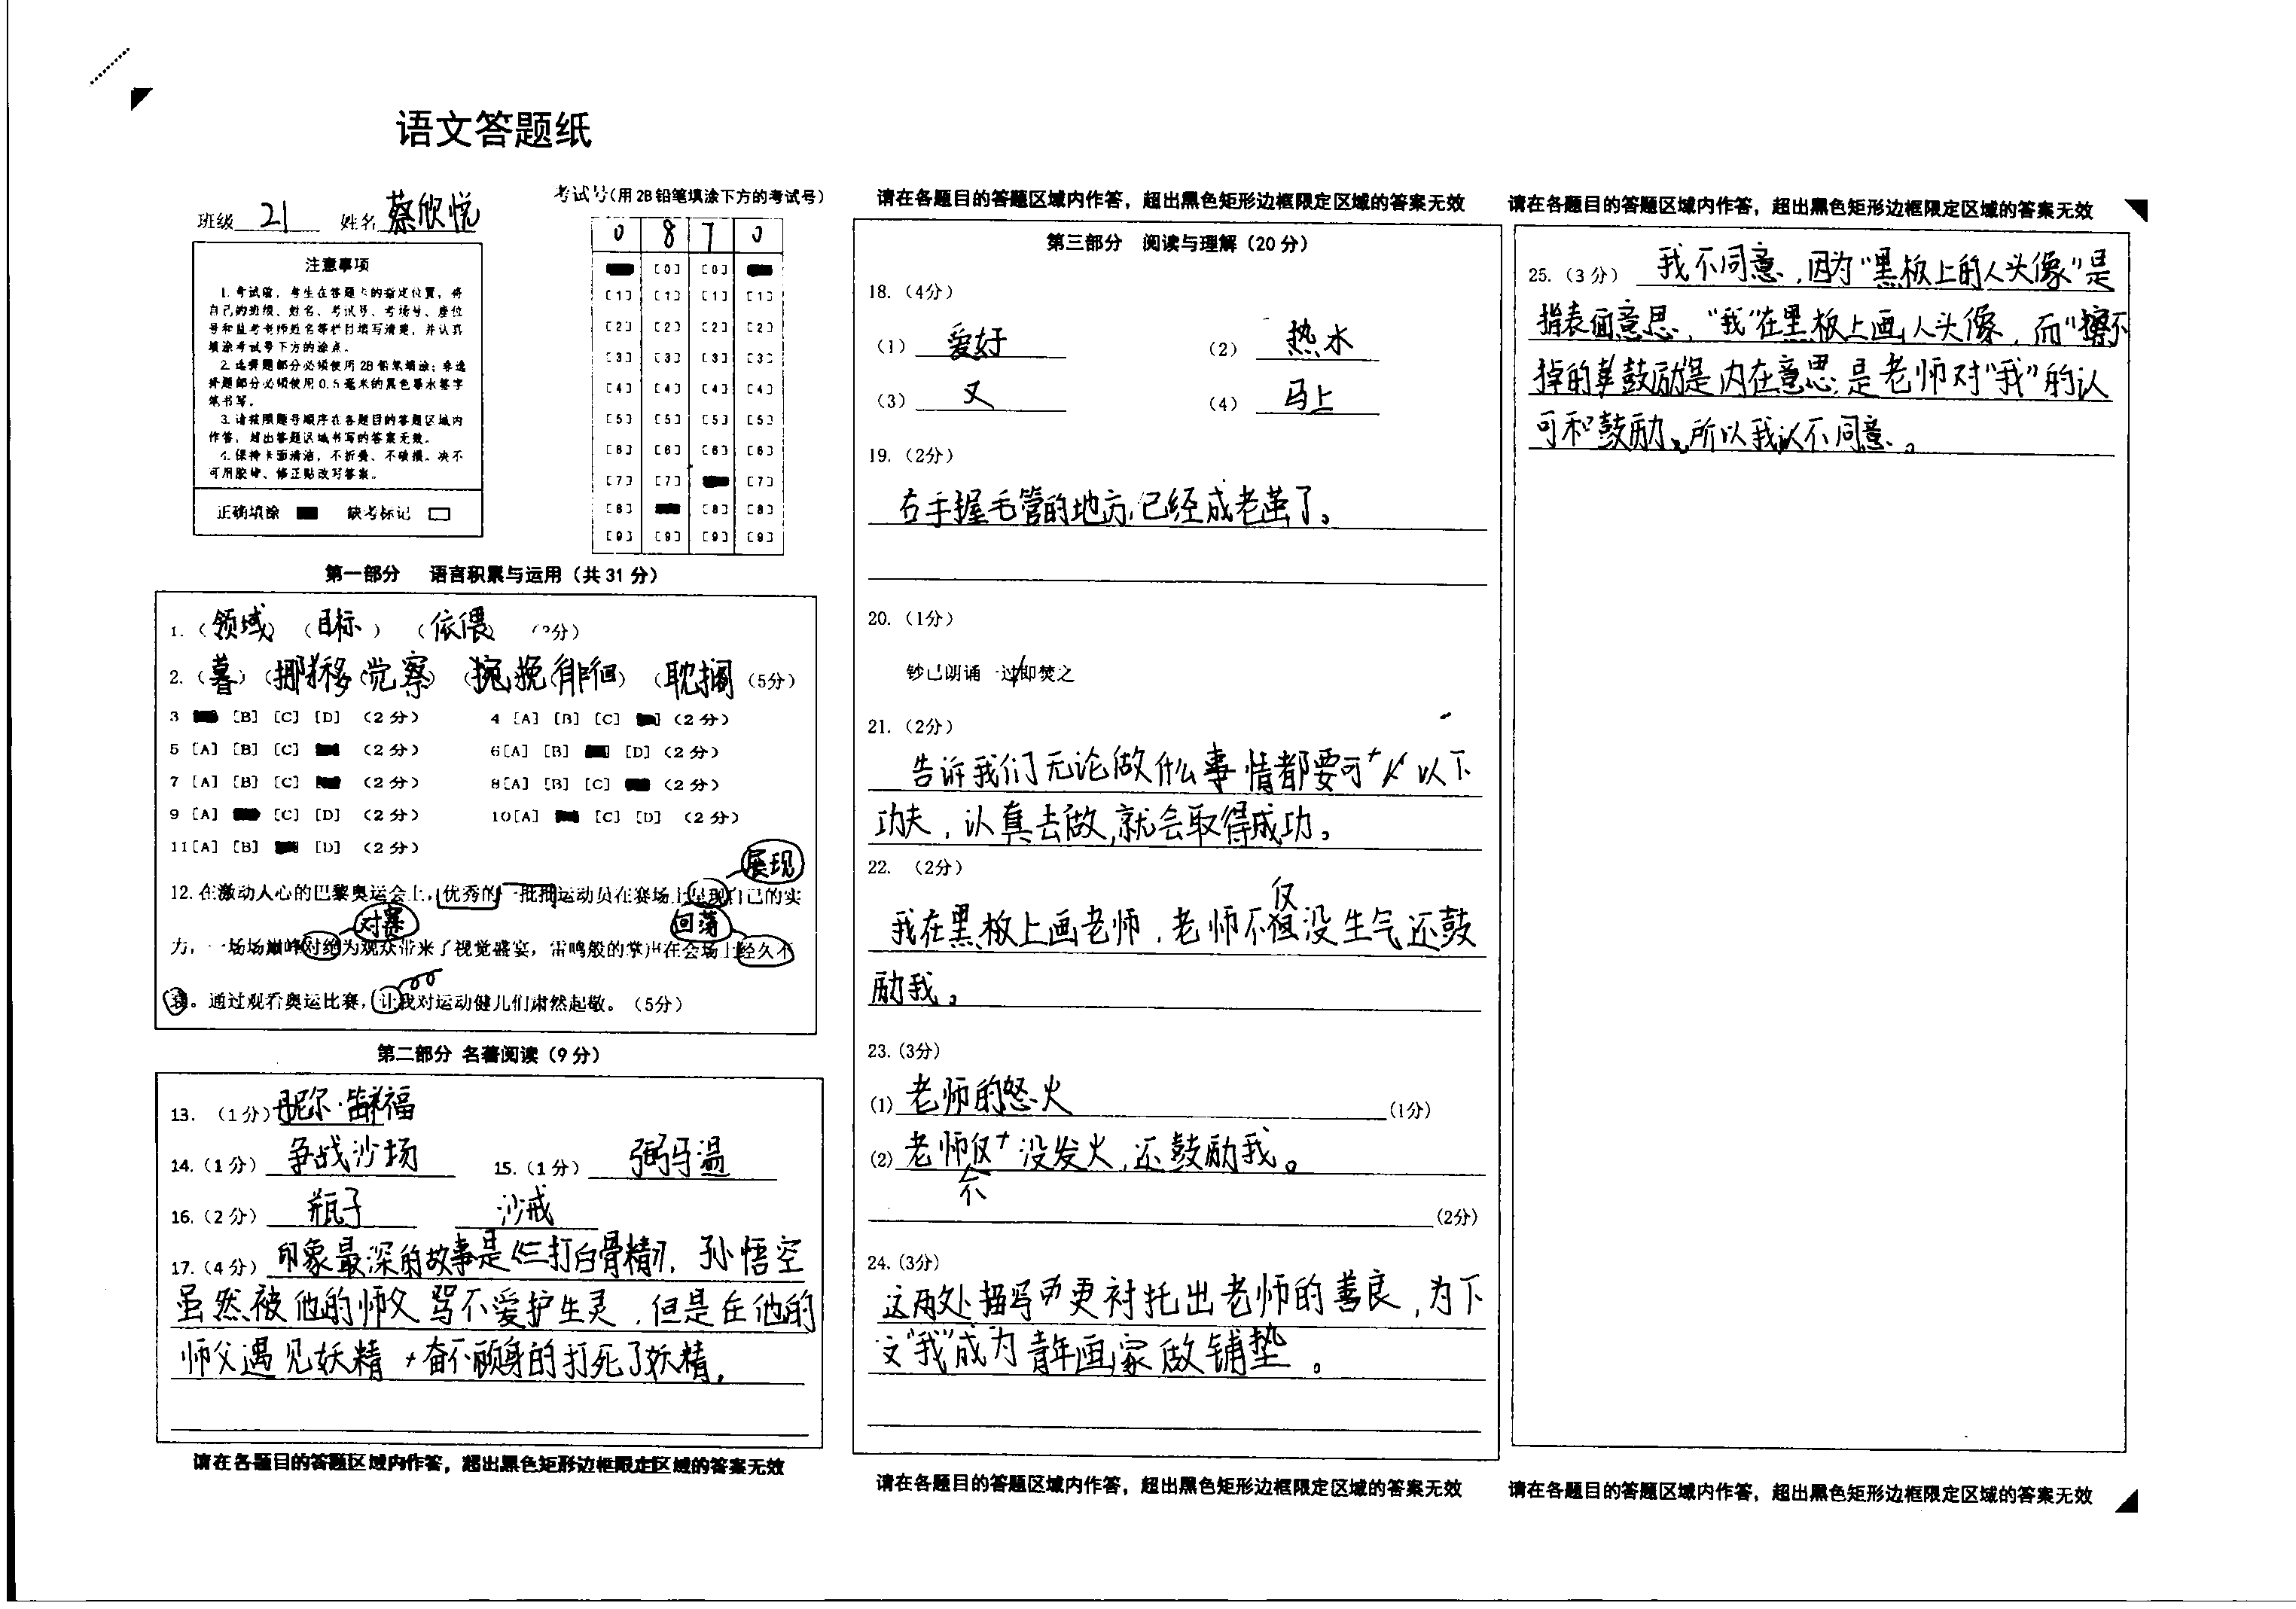 语文答题纸
班级 21 姓名 蔡欣悦
考试号(用2B铅笔填涂下方的考试号)
0 8 7 0
[0] [0]
[1] [1] [1] [1]
[2] [2] [2] [2]
[3] [3] [3] [3]
[4] [4] [4] [4]
[5] [5] [5] [5]
[6] [6] [6] [6]
[7] [7] [7]
[8] [8] [8]
[9] [9] [9] [9]
注意事项
1.考试前,考生在答题卡的指定位置,将
自己的班级、姓名、考试号、考场号、座位
号和监考老师姓名等栏目填写清楚,并认真
填涂考试号下方的涂点。
2.选择题部分必须使用2B铅笔填涂;非选
择题部分必须使用0.5毫米的黑色墨水签字
笔书写。
3.请按照题号顺序在各题目的答题区域内
作答,超出答题区域书写的答案无效。
4.保持卡面清洁,不折叠、不破损。决不
可用胶带、修正贴改写答案。
正确填涂 缺考标记
第一部分 语言积累与运用(共31分)
1.(领域)(目标)(依偎)(3分)
2.(暮)(挪移)(觉察)(挽)(徘徊)(耽搁)(5分)
3 [B] [C] [D] (2分) 4 [A] [B] [C] (2分)
5 [A] [B] [C] (2分) 6[A] [B] [D](2分)
7 [A] [B] [C] (2分) 8[A] [B] [C] (2分)
9 [A] [C] [D] (2分) 10[A] [C] [D] (2分)
11[A] [B] [D] (2分)
展现
12.在激动人心的巴黎奥运会上,优秀的一批批运动员在赛场上呈现自己的实
对赛 回荡
力,一场场巅峰对绝为观众带来了视觉盛宴,雷鸣般的掌声在会场上经久不
衰。通过观看奥运比赛,让我对运动健儿们肃然起敬。(5分)
第二部分 名著阅读(9分)
13.(1分)丹尼尔·笛福
14.(1分)争战沙场 15.(1分)弼马温
16.(2分)瓶子 沙戒
17.(4分)印象最深的故事是《三打白骨精》,孙悟空
虽然被他的师父骂不爱护生灵,但是在他的
师父遇见妖精奋不顾身的打死了妖精。
请在各题目的答题区域内作答,超出黑色矩形边框限定区域的答案无效
请在各题目的答题区域内作答,超出黑色矩形边框限定区域的答案无效
第三部分 阅读与理解(20分)
18.(4分)
(1)爱好 (2)热水
(3)又 (4)马上
19.(2分)
右手握毛管的地方,已经成老茧了。
20.(1分)
钞已朗诵一过/即焚之
21.(2分)
告诉我们无论做什么事情都要可以下
功夫,认真去做,就会取得成功。
22.(2分)
我在黑板上画老师,老师不仅没生气还鼓
励我。
23.(3分)
(1)老师的怒火(1分)
(2)老师不仅没发火,还鼓励我。
(2分)
24.(3分)
这两处描写更衬托出老师的善良,为下
文“我”成为青年画家做铺垫。
请在各题目的答题区域内作答,超出黑色矩形边框限定区域的答案无效
请在各题目的答题区域内作答,超出黑色矩形边框限定区域的答案无效
25.(3分)我不同意,因为“黑板上的人头像”是
指表面意思,“我”在黑板上画人头像,而“擦不
掉的鼓励”是内在意思,是老师对“我”的认
可和鼓励。所以我认不同意。
请在各题目的答题区域内作答,超出黑色矩形边框限定区域的答案无效